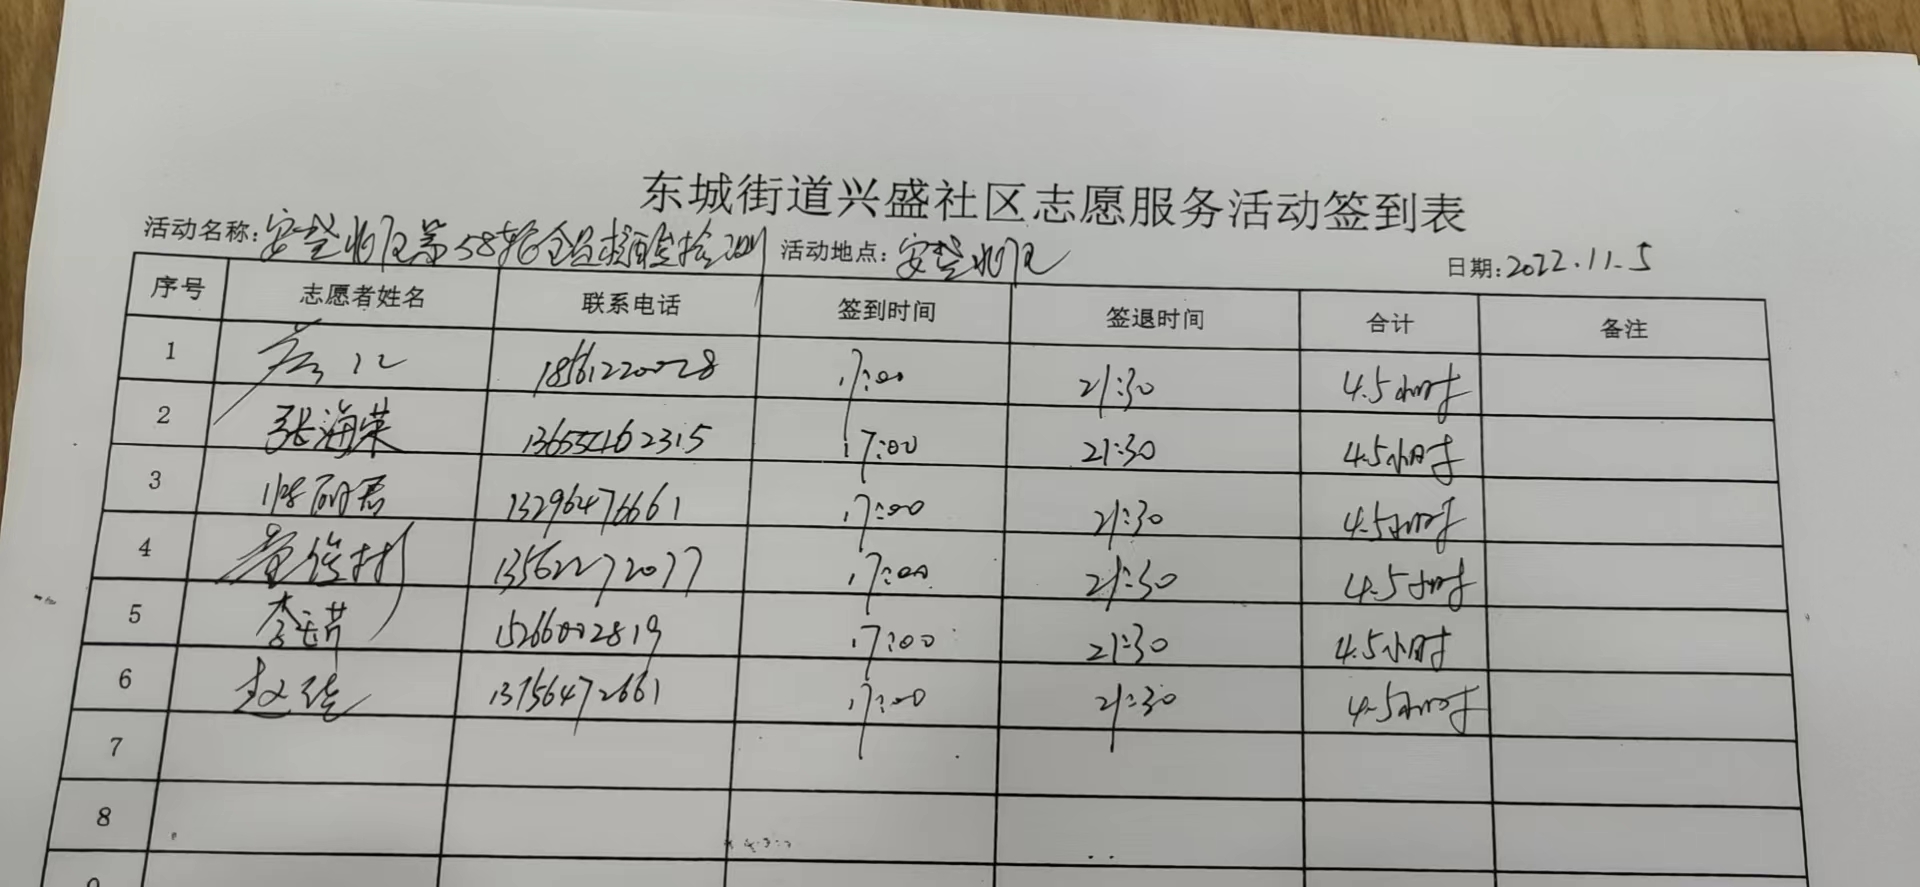 东城街道兴盛社区志愿服务活动签到表
活动名称:安楚小区第58轮全员核酸检测 活动地点:安楚小区 日期:2022.11.5
序号 志愿者姓名 联系电话 签到时间 签退时间 合计 备注
1 18561220028 17:00 21:30 4.5小时
2 张海荣 13655462315 17:00 21:30 4.5小时
3 13296476661 17:00 21:30 4.5小时
4 13562272077 17:00 21:30 4.5小时
5 15266002819 17:00 21:30 4.5小时
6 13756472661 17:00 21:30 4.5小时
7
8
9